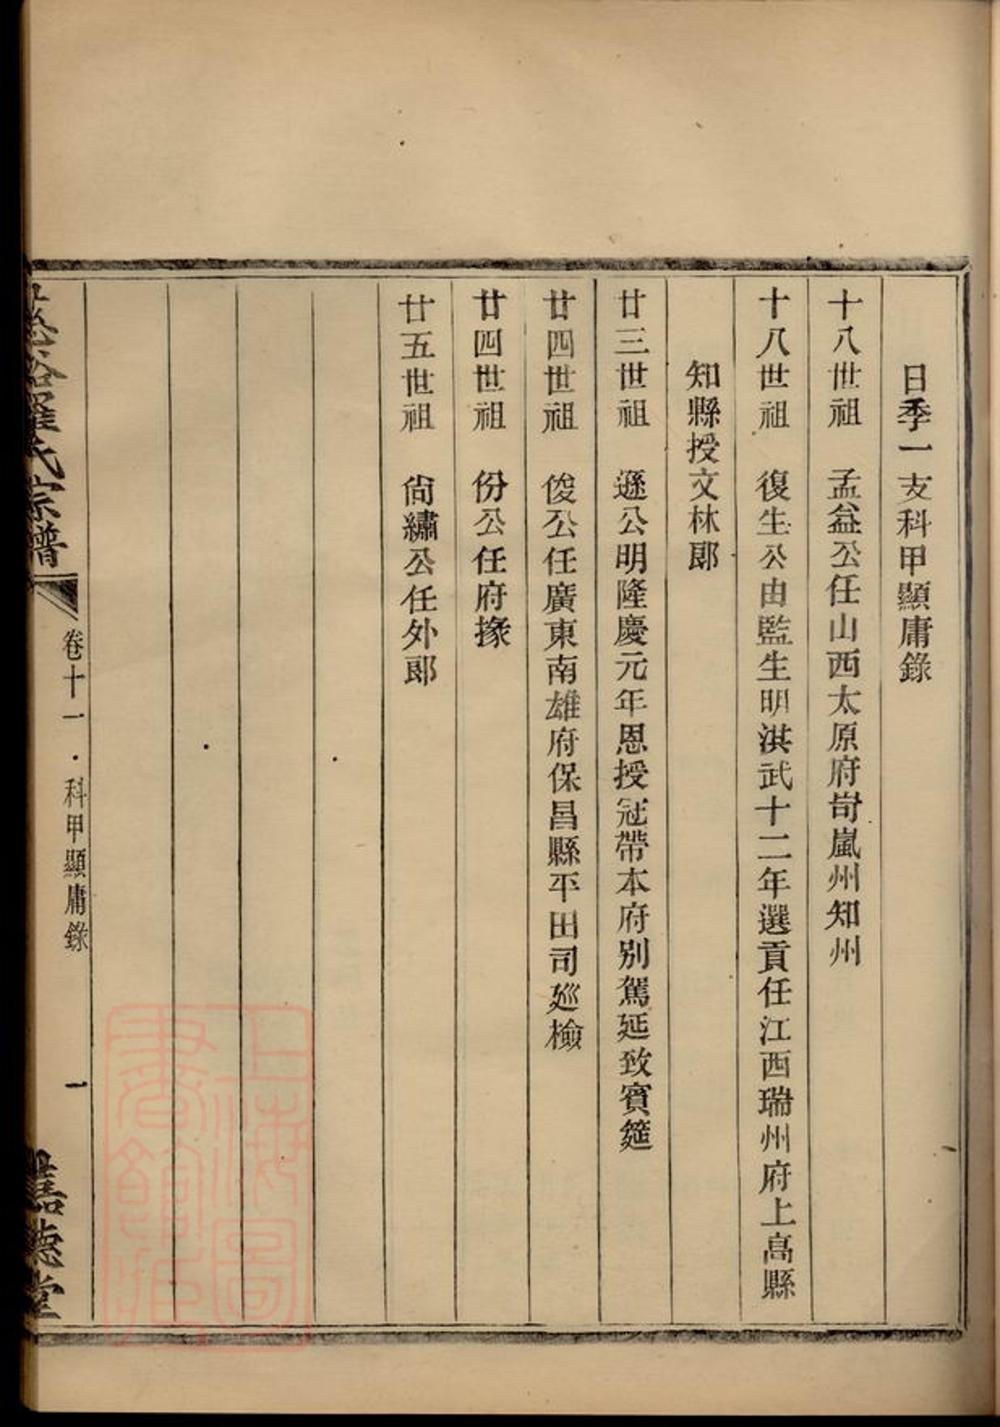 日季一支科甲顯庸錄
十八世祖　孟益公任山西太原府岢嵐州知州
十八世祖　復生公由監生明洪武十二年選貢任江西瑞州府上高縣
知縣授文林郎
廿三世祖　遜公明隆慶元年恩授冠帶本府別駕延致賓筵
廿四世祖　俊公任廣東南雄府保昌縣平田司廵檢
廿四世祖　份公任府掾
廿五世祖　尙繡公任外郎
羅氏宗譜
卷十一·科甲顯庸錄
一
德堂
上海圖書館藏